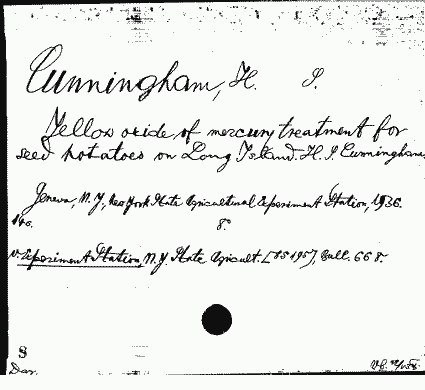 Cunningham, H. S.
Yellow oxide of mercury treatment for
seed potatoes on Long Island. H. S. Cunningham.
Geneva, N. Y., New York State Agricultural Experiment Station, 1936.
14p. 8°
v. Experiment Station, N.Y. State Agricult. [ts 195], Bull. 668.
S